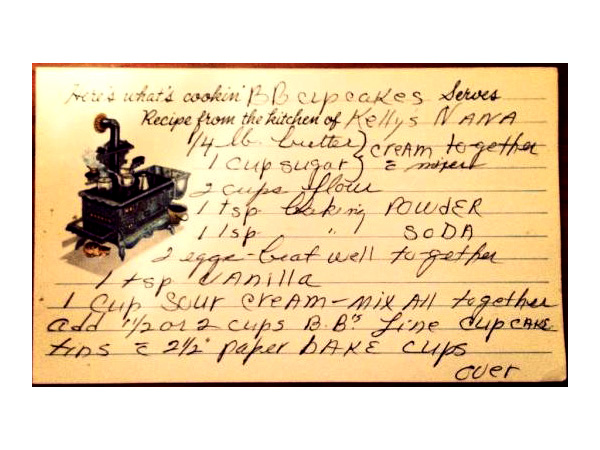 Here's what's cookin' BB cupcakes Serves
Recipe from the kitchen of Kelly's NANA
1/4 lb. butter } CREAM together
1 cup sugar } c̄ mixer
2 cups flour
1 tsp baking POWDER
1 tsp " SODA
2 eggs - beat well together
1 tsp VANilla
1 cup Sour CREAM - Mix All together
add 1 1/2 or 2 cups B.B's Line cupcake
tins c̄ 2 1/2" paper bAKE cups
over